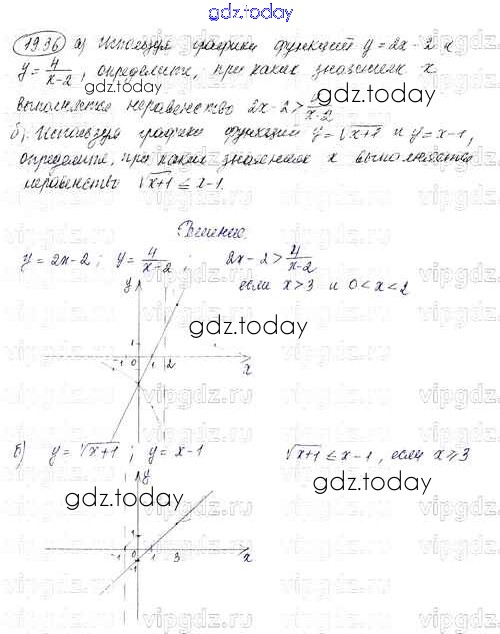 gdz.today
19.36 а) Используя графики функций y = 2x - 2 и
y = 4/(x-2), определите, при каких значениях x
выполняется неравенство 2x - 2 > 4/(x-2)
gdz.today
б) Используя графики функций y = √(x+1) и y = x - 1,
определите, при каких значениях x выполняется
неравенство √(x+1) ≤ x - 1.
gdz.today
Решение.
y = 2x - 2 ; y = 4/(x-2) ; 2x - 2 > 4/(x-2)
если x > 3 и 0 < x < 2
y
gdz.today
1
-1 0 1 2 x
б) y = √(x+1) ; y = x - 1 √(x+1) ≤ x - 1, если x ≥ 3
gdz.today
gdz.today
y
1
-1 0 1 3 x
-1
gdz.today
vipgdz.ru vipgdz.ru vipgdz.ru